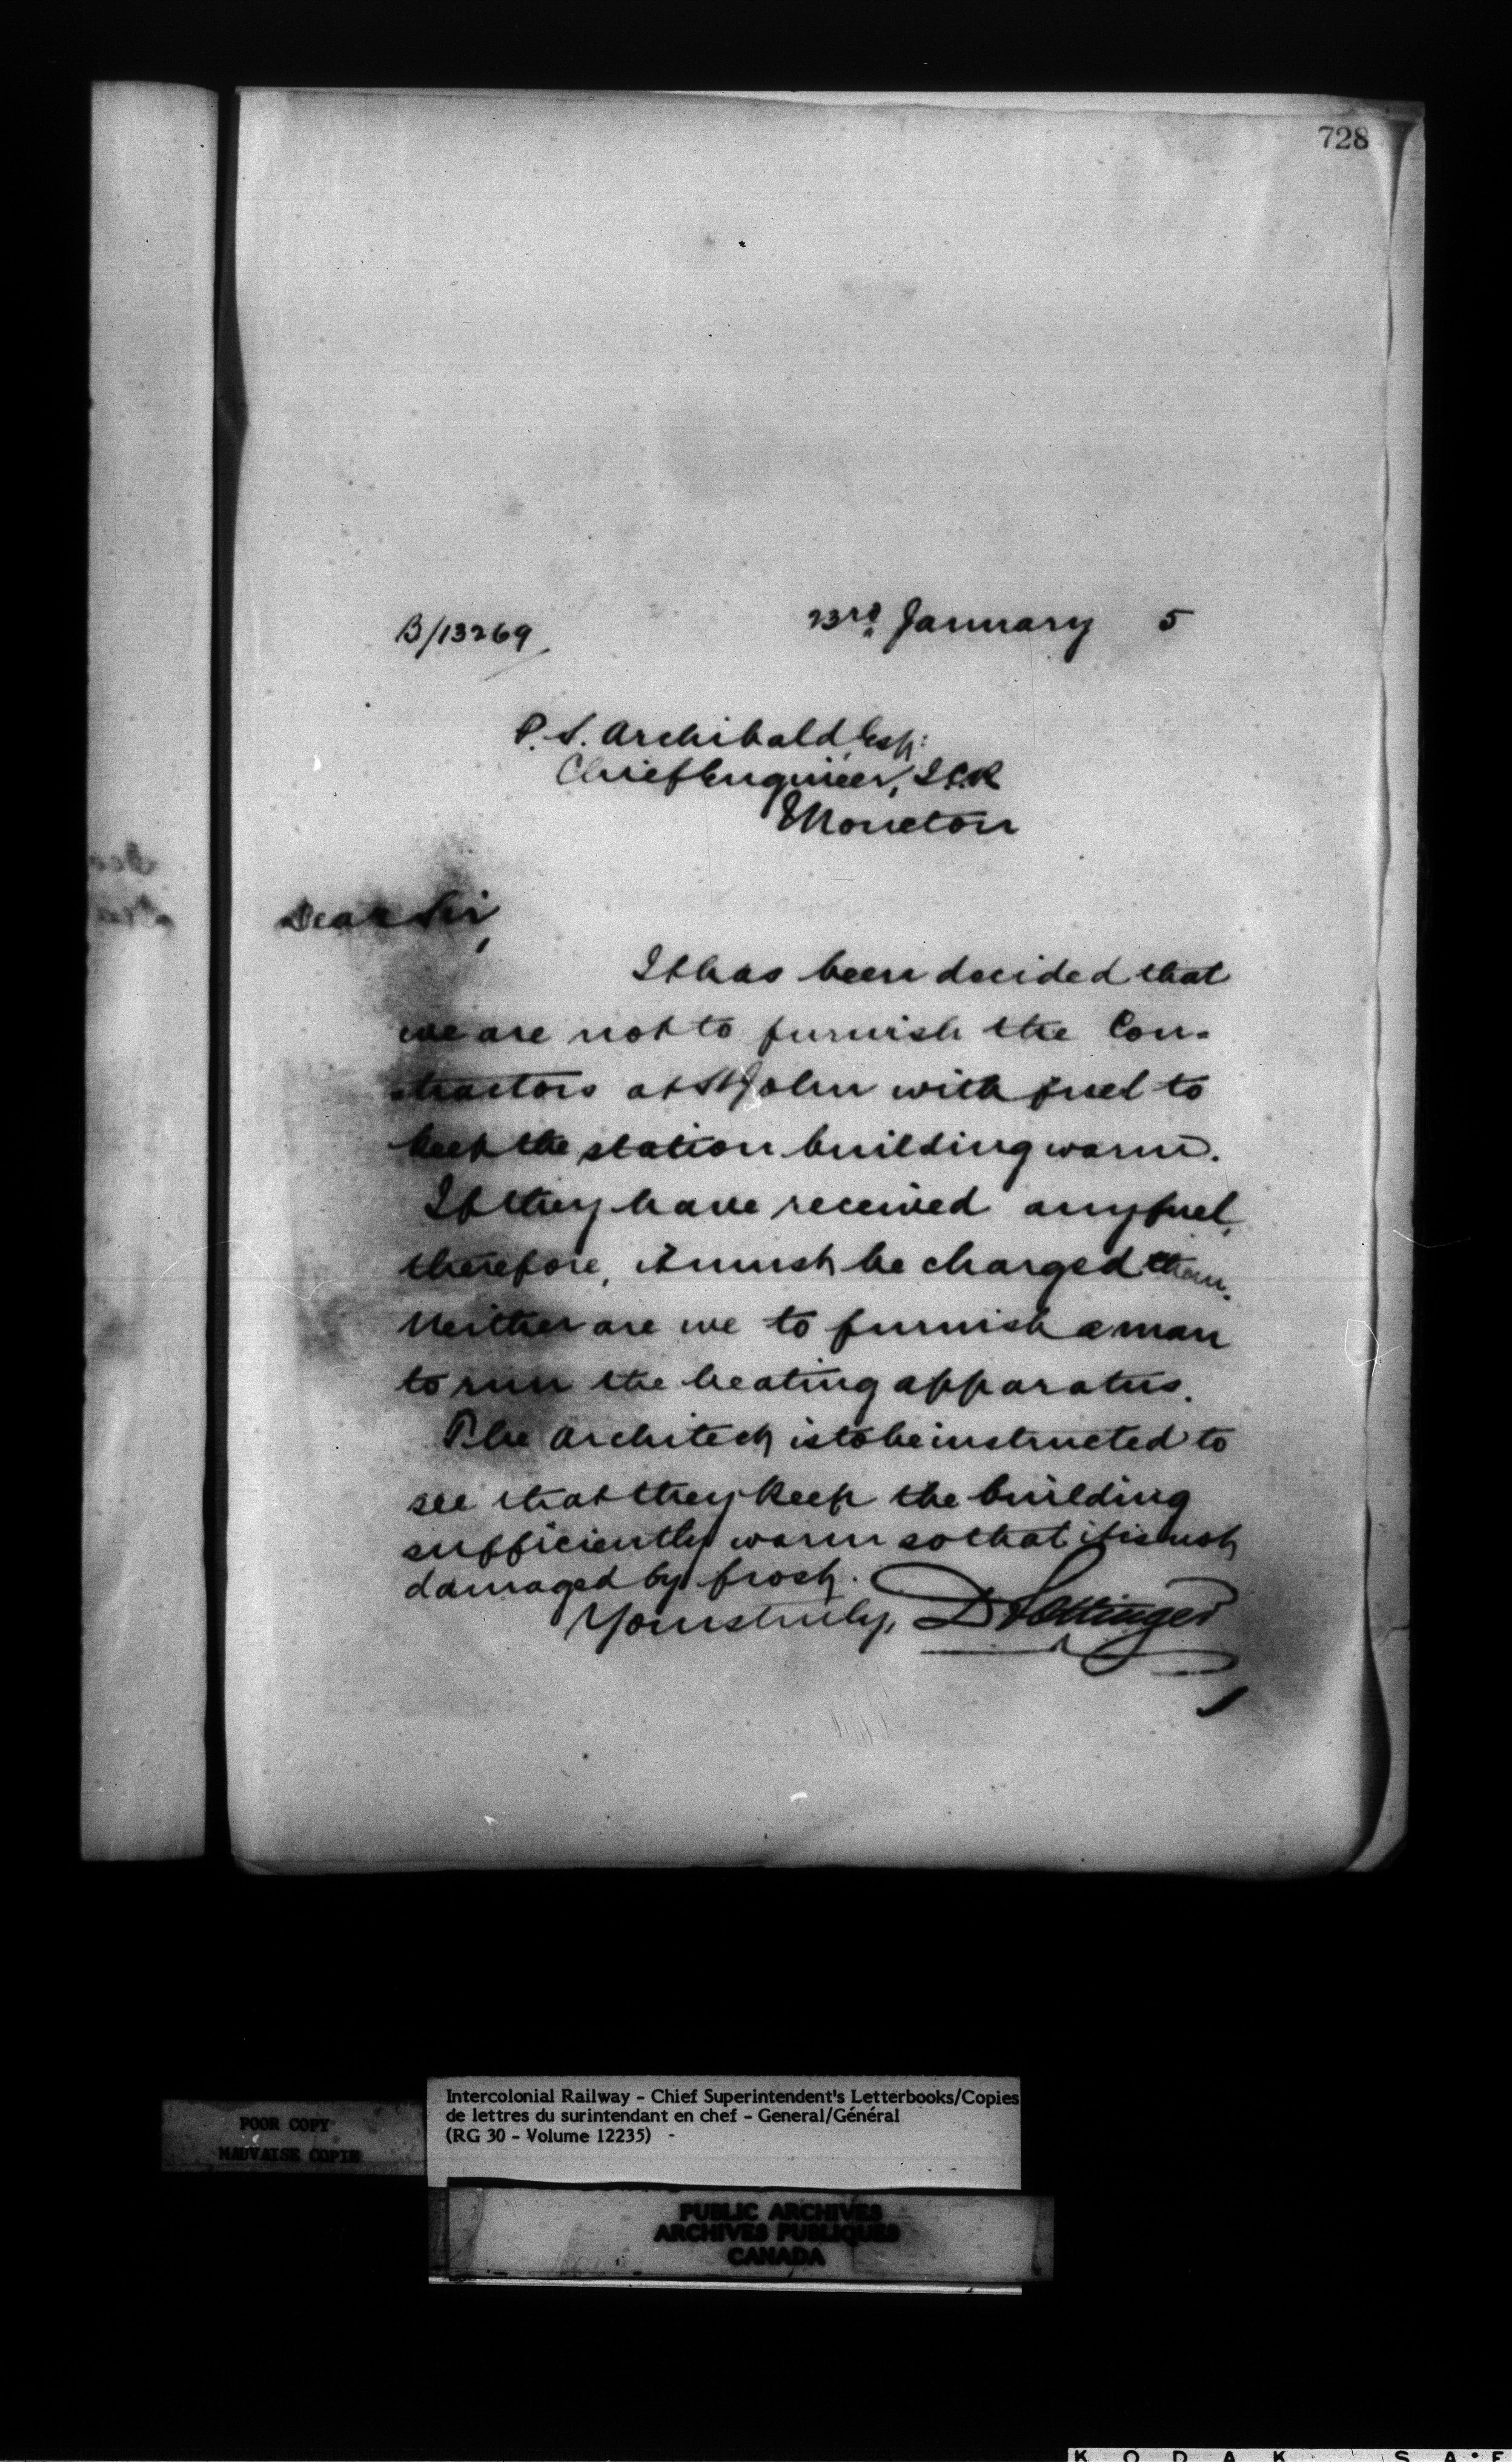 728
B/13269
23rd January 5
P. S. Archibald Esq:
Chief Engineer, I.C.R
Moncton
Dear Sir,
It has been decided that
we are not to furnish the Con-
-tractors at St John with fuel to
keep the station building warm.
If they have received any fuel,
therefore, it must be charged them.
Neither are we to furnish a man
to run the heating apparatus.
The Architect is to be instructed to
see that they keep the building
sufficiently warm so that it is not
damaged by frost.
Yours truly, D Pottinger
POOR COPY
MAUVAISE COPIE
Intercolonial Railway - Chief Superintendent's Letterbooks/Copies
de lettres du surintendant en chef - General/Général
(RG 30 - Volume 12235) -
PUBLIC ARCHIVES
ARCHIVES PUBLIQUES
CANADA